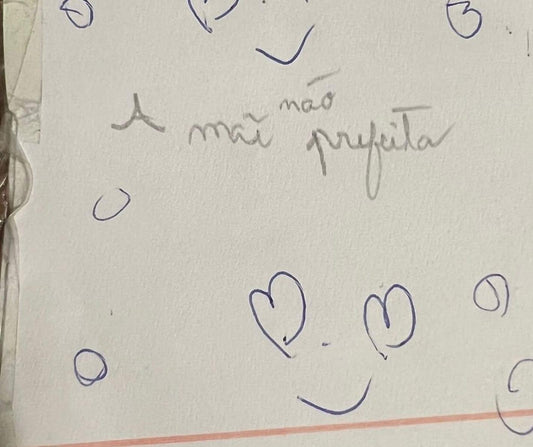 A mãe não prefeita